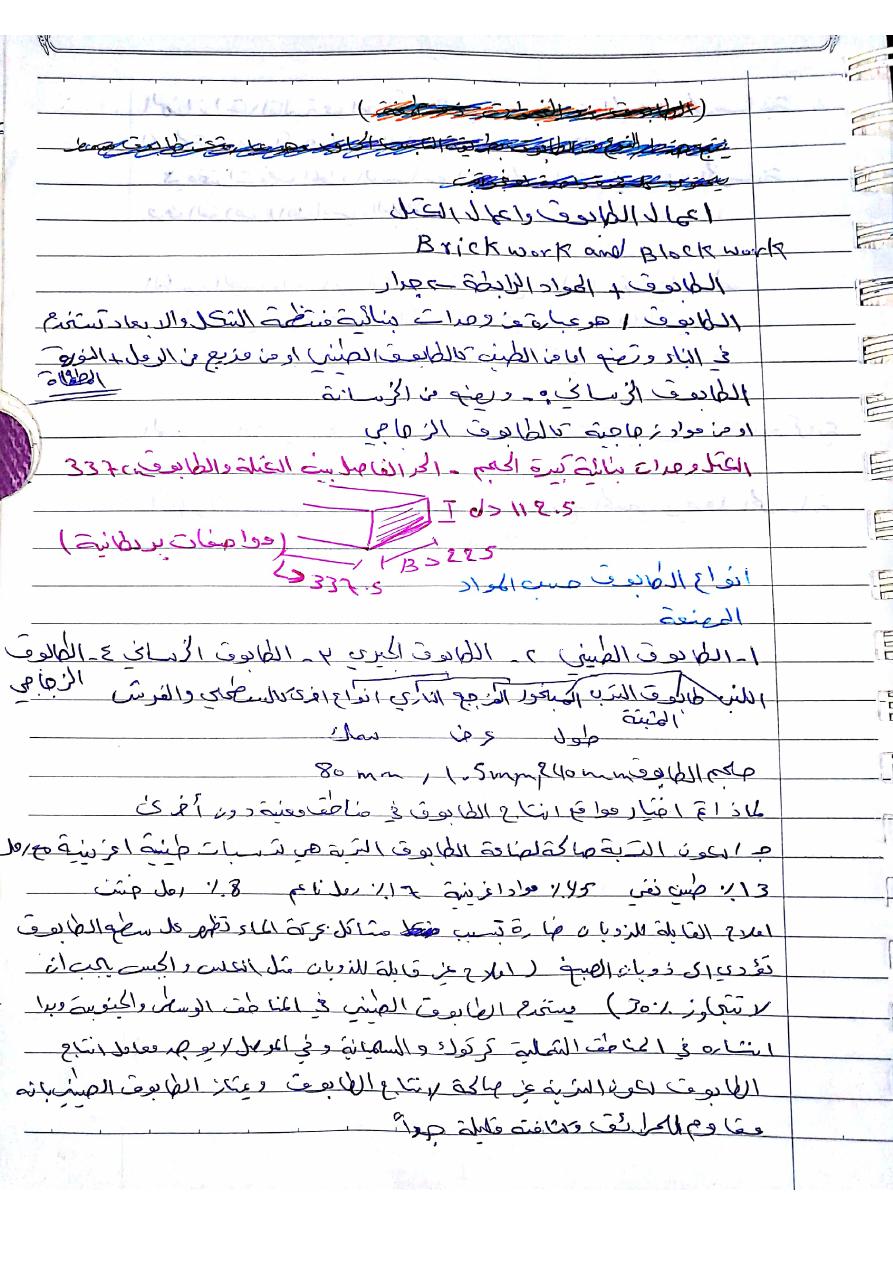 اعمال الطابوق واعمال الكتل
Brick work and Block work
الطابوق + المواد الرابطة ← جدار
الطابوق / هو عبارة عن وحدات بنائية منتظمة الشكل والابعاد تستخدم
في البناء وتصنع اما من الطين كالطابوق الطيني او من مزيج من الرمل + النورة
المطفأة
الطابوق الخرساني :- ويصنع من الخرسانة
او من مواد زجاجية كالطابوق الزجاجي
الكتل وحدات بنائية كبيرة الحجم - الحد الفاصل بين الكتلة والطابوق 337
d > 112.5
B > 225
(مواصفات بريطانية)
337.5
انواع الطابوق حسب المواد
المصنعة
1- الطابوق الطيني 2- الطابوق الجيري 3- الطابوق الخرساني 4- الطابوق
الزجاجي
اللبن طابوق التربة المفخور المزجج الناري انواع اخرى كالسطحي والفرش
المثبتة
طول عرض سمك
حجم الطابوق 240 mm 80 mm
لماذا تم اختيار مواقع انتاج الطابوق في مناطق معينة دون أخرى
ج / لكون التربة صالحة لصناعة الطابوق التربة هي ترسبات طينية اغرينية مع رمل
13٪ طين نقي 45٪ مواد اغرينية 17٪ رمل ناعم 8٪ رمل خشن
املاح القابلة للذوبان ضارة تسبب مشاكل بحركة الماء تظهر على سطح الطابوق
تؤدي الى ذوبان الصبغ ( املاح غير قابلة للذوبان مثل الكلس والجبس يجب ان
لا تتجاوز 30٪ ) يستخدم الطابوق الطيني في المناطق الوسطى والجنوبية وبدا
انتشاره في المناطق الشمالية كركوك والسليمانية وفي الموصل لا يوجد معامل انتاج
الطابوق لكون التربة غير صالحة لانتاج الطابوق ويمتاز الطابوق الطيني بانه
مقاوم للحرائق وكثافته قليلة جداً